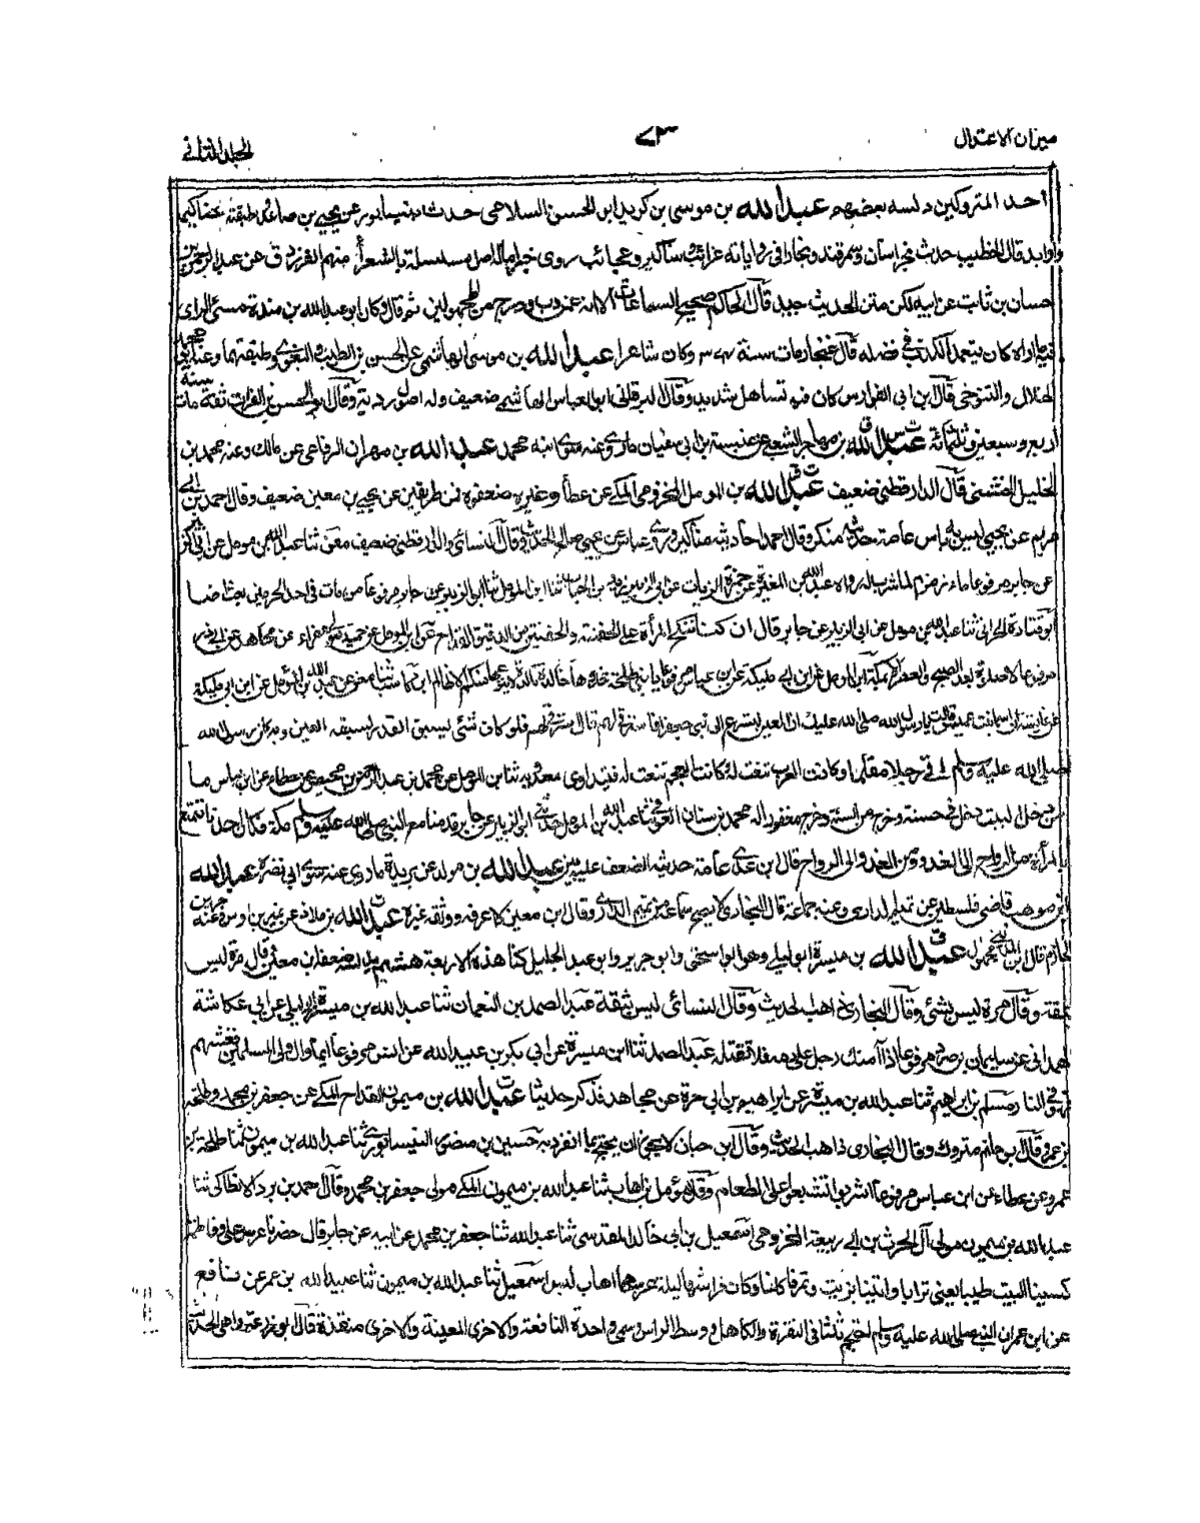 ميزان الاعتدال
٧٣
الجلد الثاني
احد المتروكين دلسه بعضهم عبد الله بن موسى بن كريد ابو الحسن السلامي حدث بنيسابور عن يحيى بن صاعد وطبقته بمناكير
واوابد قال الخطيب حدث بخراسان وسمرقند وبخارا في رواياته غرائب ومناكير وعجائب روى خبرا ماله اصل مسلسلة بالشعراء منهم الفرزدق عن عبد الرحمن بن
حسان بن ثابت عن ابيه لكن متن الحديث جيد قال الحاكم صحيح السماعات الا انه كتب عمن دب ودرج من المجهولين ثم قال وكان ابو عبد الله بن مندة سيئ الراى
فيه وما اراه كان يتعمد الكذب في فضله قال غنجار مات سنة ٣٧٤ وكان شاعرا عبد الله بن موسى الهاشمي عن الحسن بن الطيب والبغوي وطبقتهما وعنه
الهلال والتنوخي قال ابن ابي الفوارس كان فيه تساهل شديد وقال البرقاني ابو العباس الهاشمي ضعيف وله اصول ردية وقال ابو الحسن بن الفرات ثقة مات سنة
اربع وسبعين وثلثمائة عبد الله بن مهاجر الشعيثي عن عنبسة بن ابي سفيان ما روى عنه سوى ابنه محمد عبد الله بن مهران الرفاعي عن مالك وعنه محمد بن
الخليل الخشني قال الدارقطني ضعيف عبد الله بن المومل المخزومي المكي عن عطاء وغيره ضعفوه فمن طريقين عن يحيى بن معين ضعيف وقال احمد بن ابي
مريم عن يحيى ليس به باس عامة حديثه منكر وقال احمد احاديثه مناكير وروى عباس عن يحيى صالح الحديث وقال النسائي والدارقطني ضعيف معن ثنا عبد الله بن مومل عن ابي الزبير
عن جابر مرفوعا ماء زمزم لما شرب له رواه عبد الله بن المغيرة عن حمزة الزيات عن ابي الزبير زيد بن الحباب ثنا ابن المومل ثنا ابو الزبير عن جابر مرفوعا من مات في احد الحرمين بعث امنا
ابو قتادة الحراني ثنا عبد الله بن مومل عن ابي الزبير عن جابر قال ان كنا لننكح المرأة على الحفنة والحفنتين من الدقيق القداح عن ابن المومل عن حميد مولى عفراء عن مجاهد عن ابي ذر
مرفوعا لا صلوة بعد الصبح والعصر الا بمكة ابن المومل عن ابن ابي مليكة عن ابن عباس مرفوعا يا بني طلحة خذوها خالدة تالدة لا ينزعها منكم الا ظالم
عن عائشة ان اسماء بنت عميس قالت يا رسول الله صلى الله عليك ان العين تسرع الى بني جعفر افاسترقي لهم قال استرقي لهم فلو كان شئ يسبق القدر لسبقته العين وبه كان رسول الله
صلى الله عليه وسلم رجلا مقاما وكانت العرب تنعت له وكانت العجم تنعت له فيتداوى معن وغيره ثنا ابن المومل عن محمد بن عبد الرحمن بن محيصن عن عطاء عن ابن عباس ما
من دخل البيت دخل في حسنة وخرج من السيئة وخرج مغفورا له محمد بن سنان العوقي ثنا عبد الله بن المومل حدثني ابو الزبير عن جابر قدمنا مع النبي صلى الله عليه وسلم مكة فكان احدنا يتمتع
بالمرأة من الرواح الى الغدو ومن الغدو الى الرواح قال ابن عدي عامة حديثه الضعف عليه بين عبد الله بن مولة عن بريدة ما روى عنه سوى ابي نضرة عبد الله
بن موهب قاضي فلسطين عن تميم الداري وعنه جماعة قال البخاري لا يصح سماعه من تميم الداري وقال ابن معين لا اعرفه ووثقه غيره عبد الله بن ملاذ عن نمير بن اوس وعنه جرير بن
حازم قال ابن المديني مجهول عبد الله بن ميسرة ابو ليلى وهو ابو اسحق وابو جرير وابو عبد الجليل كناه هذه الاربعة هشيم يدلسه ضعفه ابن معين قال مرة ليس
بثقة وقال مرة ليس بشئ وقال البخاري ذاهب الحديث وقال النسائي ليس بثقة عبد الصمد بن النعمان ثنا عبد الله بن ميسرة ابو ليلى عن ابي عكاشة
الهمداني عن سليمان بن صرد مرفوعا اذا آمنك رجل على دمه فلا تقتله عبد الصمد ثنا ابن ميسرة عن ابي بكر بن عبيد الله عن انس مرفوعا ايما وال ولي المسلمين فغشهم
فهو في النار مسلم بن ابراهيم ثنا عبد الله بن ميسرة عن ابراهيم بن ابي حرة عن مجاهد فذكر حديثا عبد الله بن ميمون القداح المكي عن جعفر بن محمد وطلحة
بن عمرو قال ابو حاتم متروك وقال البخاري ذاهب الحديث وقال ابن حبان لا يجوز ان يحتج بما انفرد به حسين بن منصور النيسابوري ثنا عبد الله بن ميمون ثنا طلحة بن
عمرو عن عطاء عن ابن عباس مرفوعا اشربوا تشبعوا على الطعام وقال مؤمل بن اهاب ثنا عبد الله بن ميمون المكي مولى جعفر بن محمد وقال احمد بن برد الانطاكي ثنا
عبد الله بن ميمون مولى آل الحرث بن ابي ربيعة المخزومي اسمعيل بن ابي خالد المقدسي ثنا عبد الله ثنا جعفر بن محمد عن ابيه عن جابر قال حضرنا عرس علي وفاطمة
كسينا البيت طيبا يعني ترابا واتينا بزبيب وتمر فاكلنا وكان فراشهما ليلة عرسهما اهاب كبش اسمعيل ثنا عبد الله بن ميمون ثنا عبيد الله بن عمر عن نافع
عن ابن عمر ان النبي صلى الله عليه وسلم احتجم ثلثا في النقرة والكاهل ووسط الراس وسمى واحدة النافعة والاخرى المغيثة والاخرى منقذة قال ابو زرعة واهي الحديث